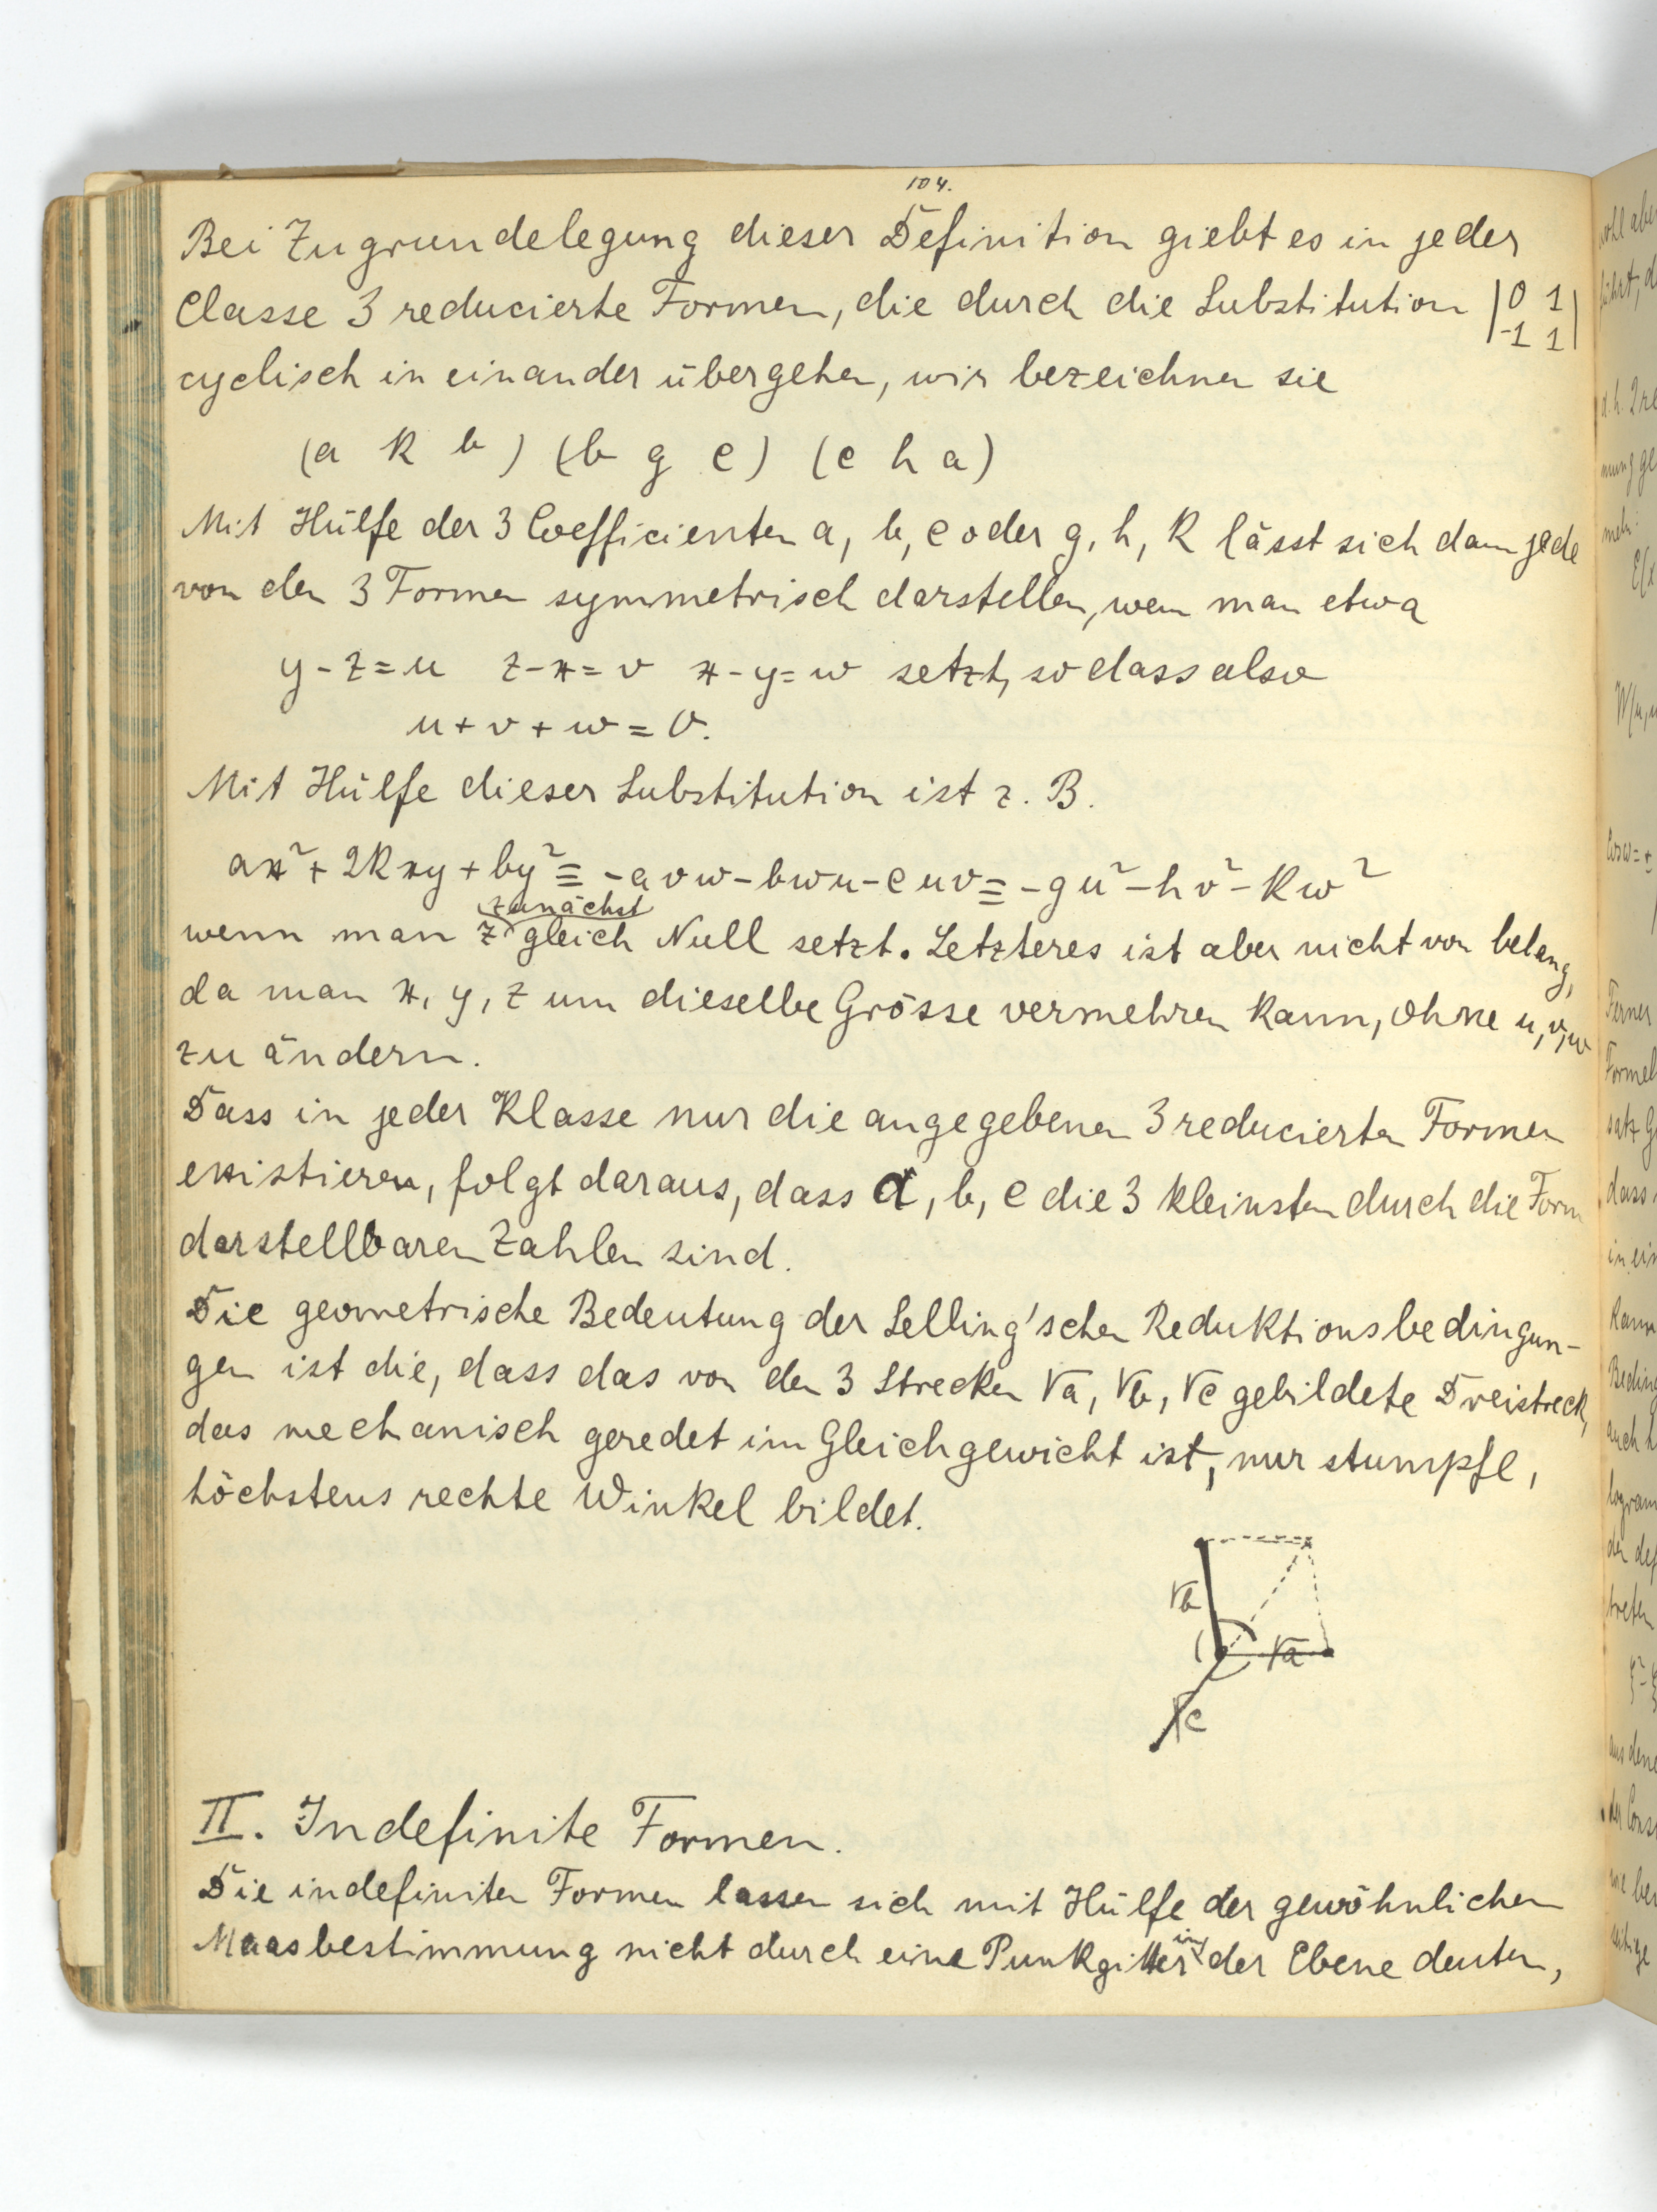 104.
Bei Zugrundelegung dieser Definition giebt es in jeder
Classe 3 reducierte Formen, die durch die Substitution |0 1
-1 1|
cyclisch in einander übergehen, wir bezeichnen sie
(a k b) (b g c) (c h a)
Mit Hülfe der 3 Coefficienten a, b, c oder g, h, k lässt sich dann jede
von den 3 Formen symmetrisch darstellen, wenn man etwa
y - z = u z - x = v x - y = w setzt, so dass also
u + v + w = 0.
Mit Hülfe dieser Substitution ist z. B.
ax² + 2kxy + by² ≡ -avw - bwu - cuv ≡ -gu² - hv² - kw²
zunächst
wenn man z gleich Null setzt. Letzteres ist aber nicht von belang,
da man x, y, z um dieselbe Grösse vermehren kann, ohne u, v, w
zu ändern.
Dass in jeder Klasse nur die angegebenen 3 reducierten Formen
existieren, folgt daraus, dass a, b, c die 3 kleinsten durch die Form
darstellbaren Zahlen sind.
Die geometrische Bedeutung der Selling'schen Reduktionsbedingun-
gen ist die, dass das von den 3 Strecken √a, √b, √c gebildete Dreistreck,
das mechanisch geredet im Gleichgewicht ist, nur stumpfe,
höchstens rechte Winkel bildet.
√b
√a
√c
II. Indefinite Formen.
Die indefiniten Formen lassen sich mit Hülfe der gewöhnlichen
in
Maasbestimmung nicht durch eine Punkgitter der Ebene deuten,